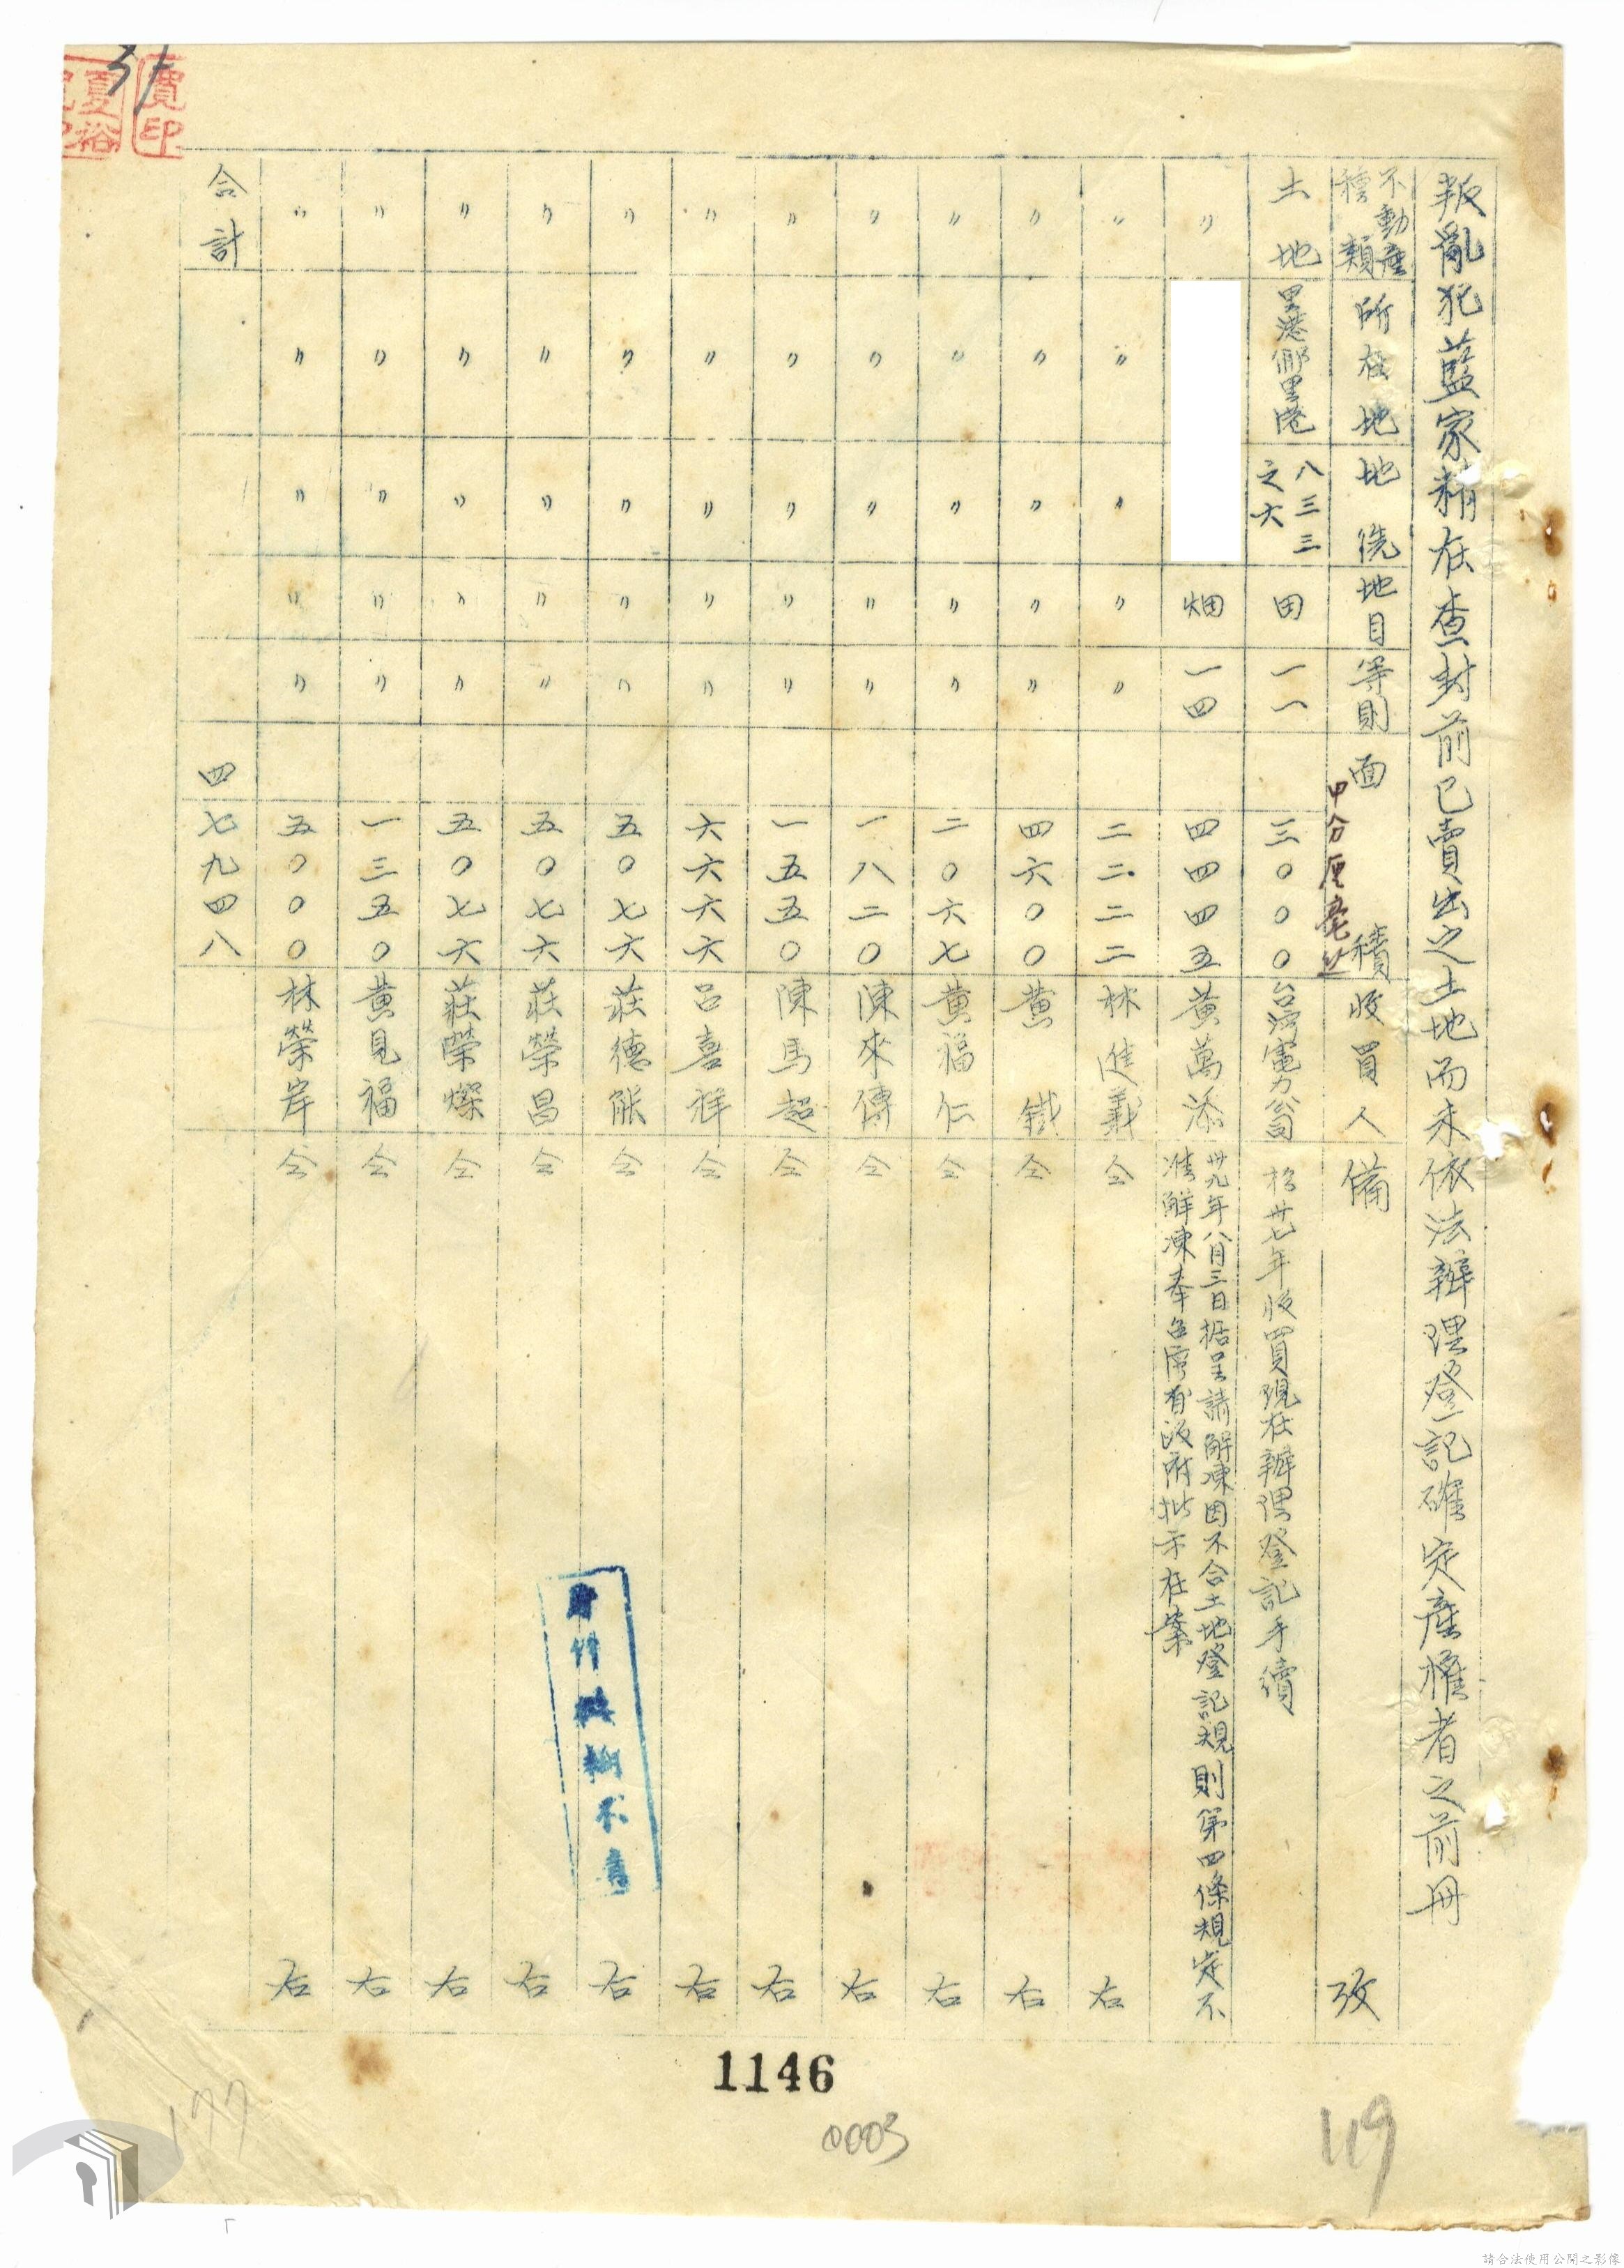 叛亂犯藍家精在查封前已賣出之土地而未依法辦理登記確定產權者之前冊
不動產種類 所在地 地號 地目 等則 面積 收買人 備攷
甲分厘毫丝
土地 里港鄉里港 八三三之六 田 一一 三〇〇〇 台灣電力公司 於卅七年收買現在辦理登記手續
〃 烟 一四 四四四五 黃萬添 卅九年八月三日據呈請解凍因不合土地登記規則第四條規定不
准解凍奉台灣省政府批示在案
〃 〃 〃 〃 〃 二二二二 林進義 仝右
〃 〃 〃 〃 〃 四六〇〇 黃鐵 仝右
〃 〃 〃 〃 〃 二〇六七 黃福仁 仝右
〃 〃 〃 〃 〃 一八二〇 陳來傳 仝右
〃 〃 〃 〃 〃 一五五〇 陳馬超 仝右
〃 〃 〃 〃 〃 六六六六 呂喜祥 仝右
〃 〃 〃 〃 〃 五〇七六 莊德能 仝右
〃 〃 〃 〃 〃 五〇七六 莊榮昌 仝右
〃 〃 〃 〃 〃 五〇七六 莊榮燦 仝右
〃 〃 〃 〃 〃 一三五〇 黃見福 仝右
〃 〃 〃 〃 〃 五〇〇〇 林榮岸 仝右
合計 四七九四八
原件模糊不清
賈印
夏裕
1146
0003
119
177
請合法使用公開之影像